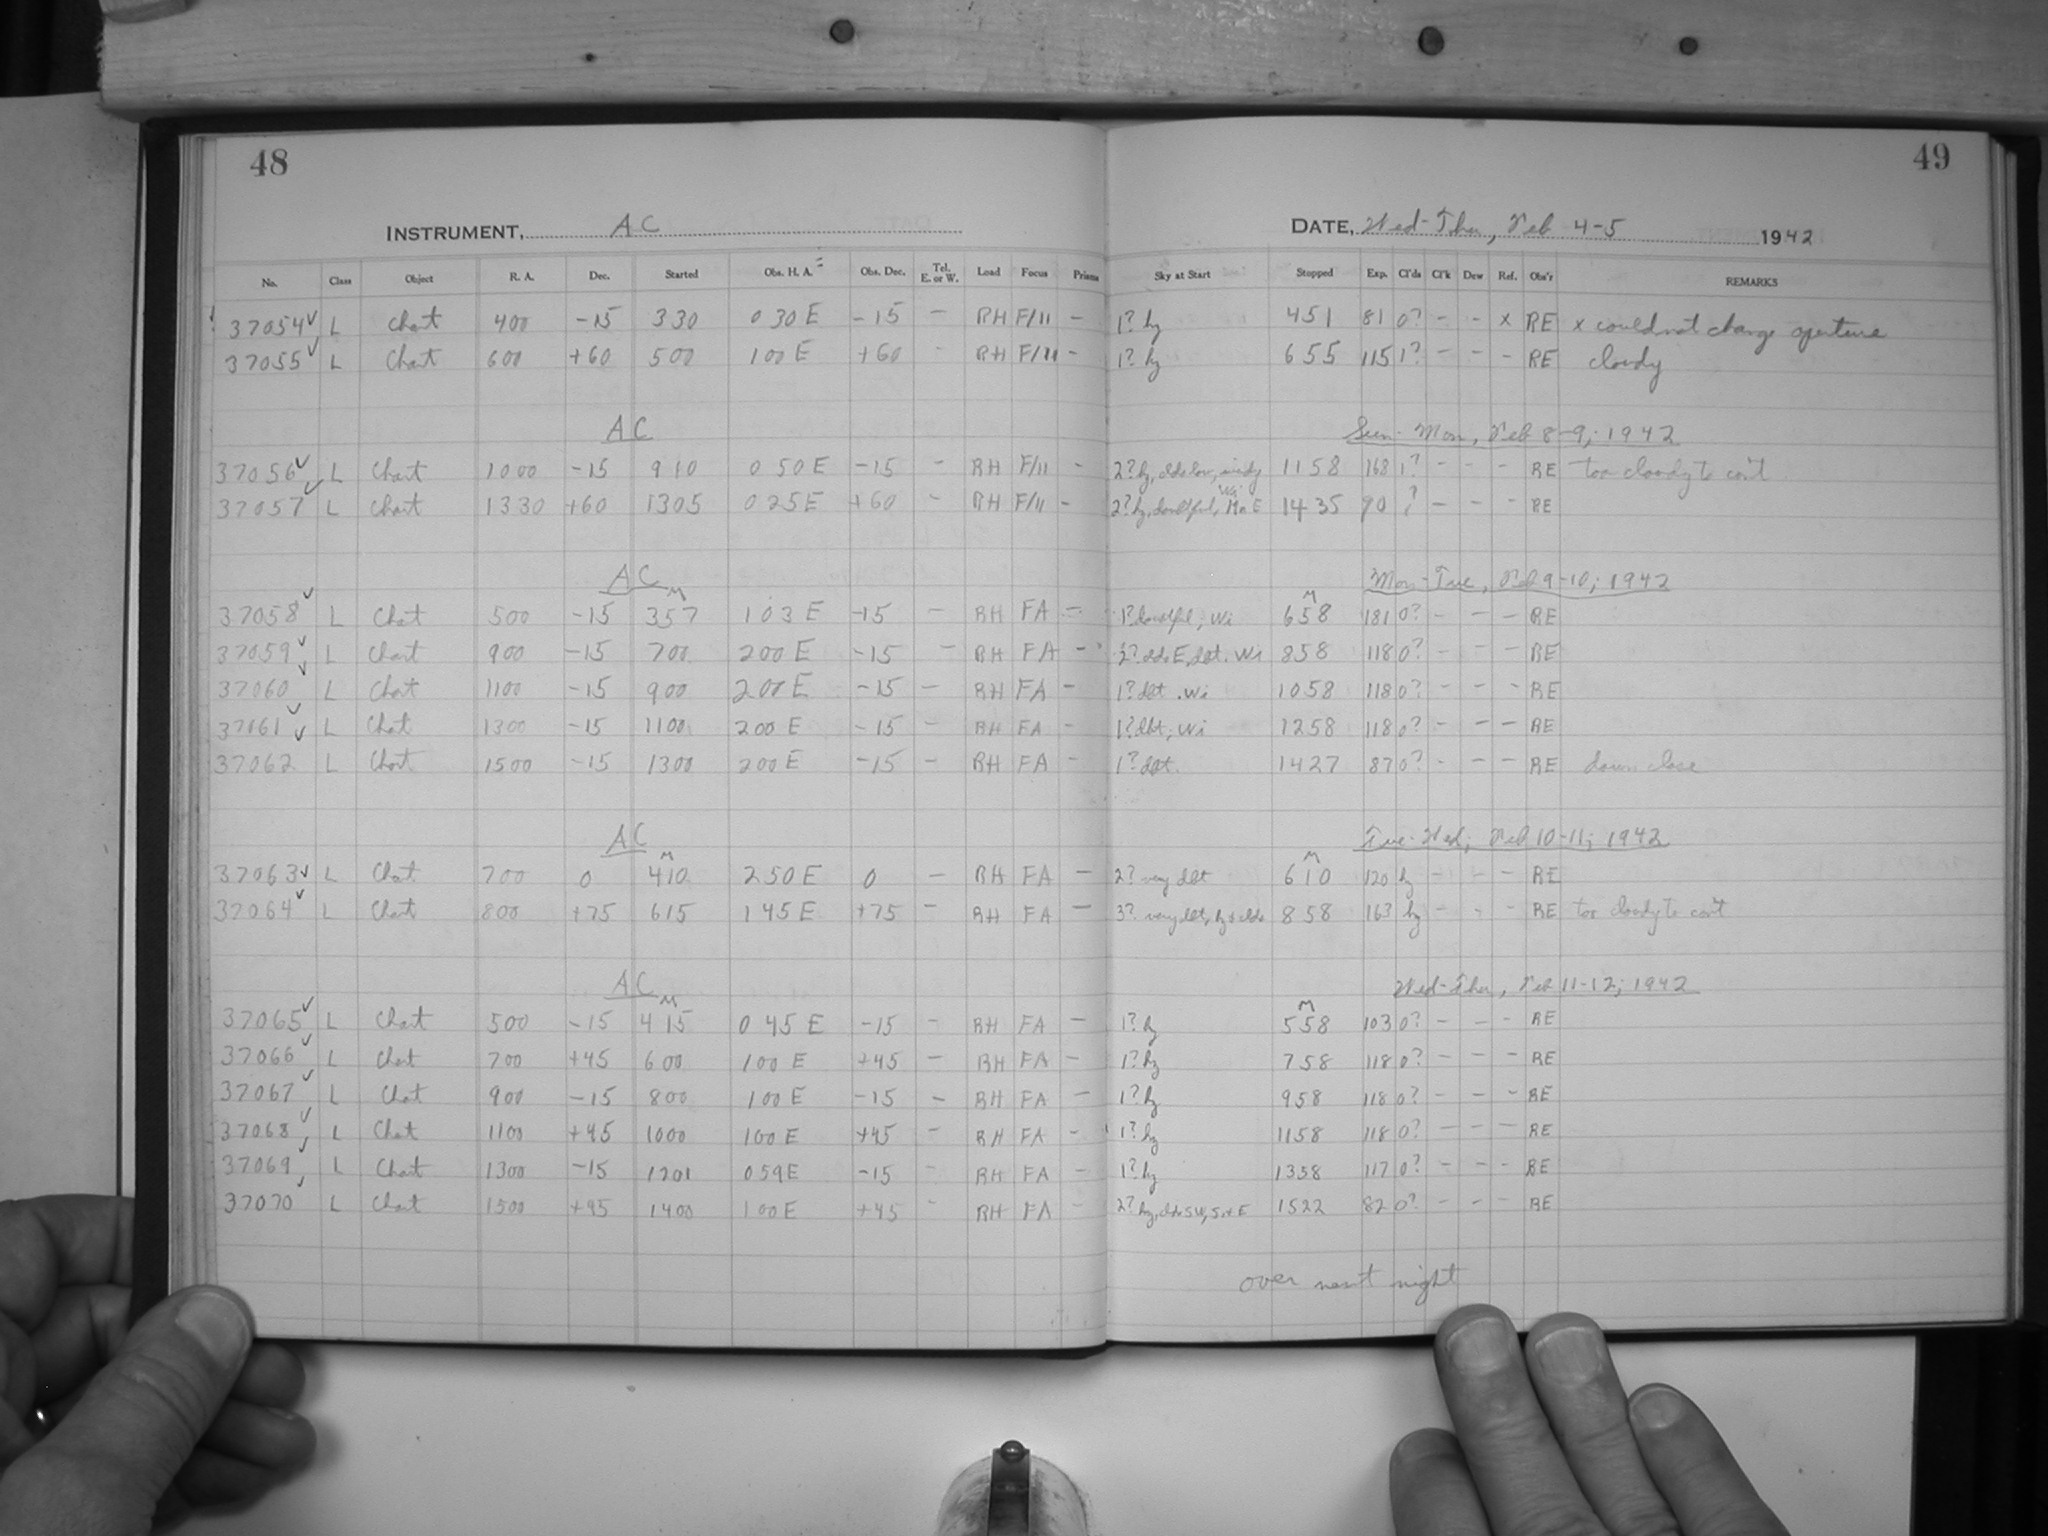 48
49
INSTRUMENT, AC
DATE, Wed-Thu, Feb 4-5 1942
No. Class Object R. A. Dec. Started Obs. H. A. Obs. Dec. Tel. E. or W. Load Focus Prisms Sky at Start Stopped Exp. Cl'ds Cl'k Dew Ref. Obs'r REMARKS
37054 ✓ L Chart 400 -15 330 030 E -15 - RH F/11 - 1? hz 451 81 0? - - x RE x could not change aperture
37055 ✓ L Chart 600 +60 500 100 E +60 - RH F/11 - 1? hz 655 115 1? - - - RE cloudy
AC Sun-Mon, Feb 8-9, 1942
37056 ✓ L Chart 1000 -15 910 050 E -15 - RH F/11 - 2? hz, clds low, windy 1158 168 1? - - - RE too cloudy to con't
37057 ✓ L Chart 1330 +60 1305 025 E +60 - RH F/11 - 2? hz, doubtful, Wi Mn E 1435 90 ? - - - RE
AC Mon-Tue, Feb 9-10, 1942
37058 ✓ L Chart 500 -15 M 357 103 E -15 - RH FA - 1? doubtful, Wi M 658 181 0? - - - RE
37059 ✓ L Chart 900 -15 700 200 E -15 - RH FA - 2? clds E, dbt. Wi 858 118 0? - - - RE
37060 ✓ L Chart 1100 -15 900 200 E -15 - RH FA - 1? dbt. Wi 1058 118 0? - - - RE
37061 ✓ L Chart 1300 -15 1100 200 E -15 - RH FA - 1? dbt, Wi 1258 118 0? - - - RE
37062 ✓ L Chart 1500 -15 1300 200 E -15 - RH FA - 1? dbt. 1427 87 0? - - - RE dawn close
AC Tue-Wed, Feb 10-11, 1942
37063 ✓ L Chart 700 0 M 410 250 E 0 - RH FA - 2? very dbt M 610 120 hz - - - RE
37064 ✓ L Chart 800 +75 615 145 E +75 - RH FA - 3? very dbt, hz + clds 858 163 hz - - - RE too cloudy to con't
AC Wed-Thu, Feb 11-12, 1942
37065 ✓ L Chart 500 -15 M 415 045 E -15 - RH FA - 1? hz M 558 103 0? - - - RE
37066 ✓ L Chart 700 +45 600 100 E +45 - RH FA - 1? hz 758 118 0? - - - RE
37067 ✓ L Chart 900 -15 800 100 E -15 - RH FA - 1? hz 958 118 0? - - - RE
37068 ✓ L Chart 1100 +45 1000 100 E +45 - RH FA - 1? hz 1158 118 0? - - - RE
37069 ✓ L Chart 1300 -15 1201 059 E -15 - RH FA - 1? hz 1358 117 0? - - - RE
37070 ✓ L Chart 1500 +45 1400 100 E +45 - RH FA - 2? hz, clds SW, S, + E 1522 82 0? - - - RE
over next night